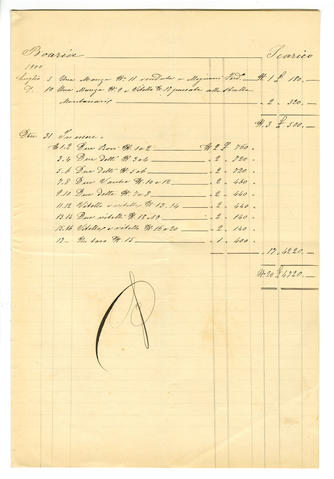 Boarìa Scarico
1900
Luglio 3 Una Manza N. 11 venduta a Ferd. N. 1 £ 180.
" 10 Una Manza N. 9 e Vitello N. passate alla Stalla
Montanari " 2 . 320.
N. 3 £ 500.
Dbre 31 In essere.
N. 1.2 Due Bovi N. 1 e 2 N. 2 £ 760
3.4 Due detti N. 3 e 4 " 2 . 720.
5.6 Due detti N. 5 e 6 " 2 . 720.
7.8 Due Vacche N. 10 e 12 " 2 . 440.
9.10 Due dette N. 7 e 8 " 2 . 440.
11.12 Vitello e vitella N. 13.14 " 2 . 440.
13.14 Due vitelli N. 18 e 19 " 2 . 140.
15.16 Vitello e vitella N. 16 e 20 " 2 . 140
17 Un toro N. 15 " 1 . 400.
" 17 . 4220.
N. 20 £ 4720.